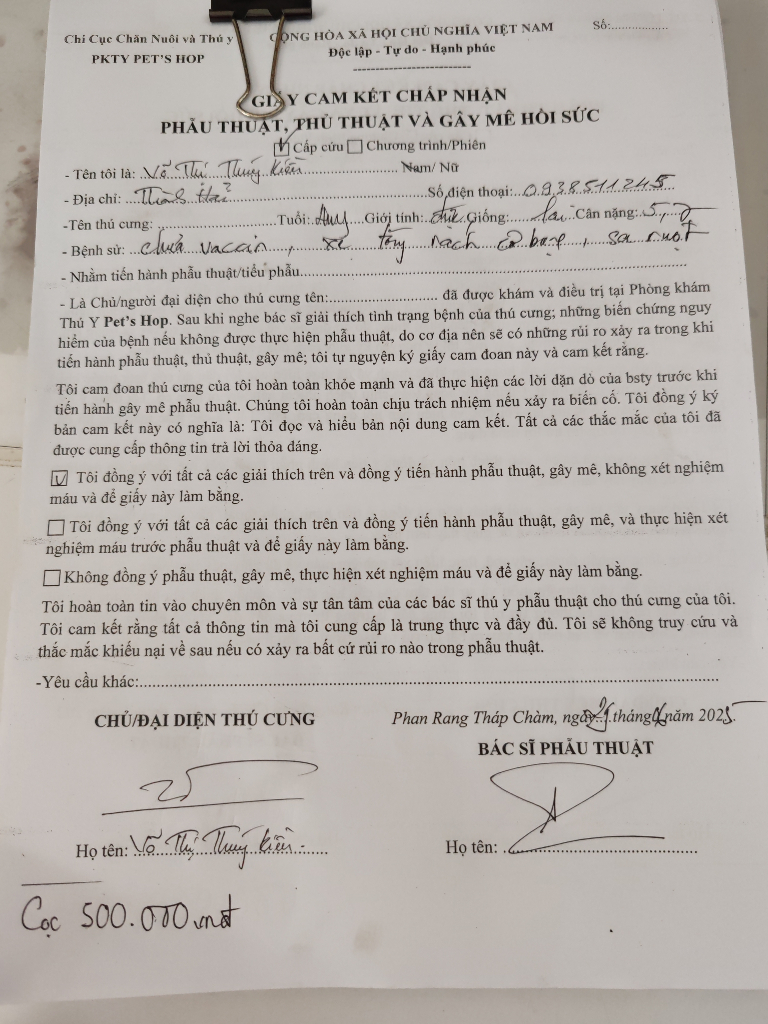 Chi Cục Chăn Nuôi và Thú y
CỘNG HÒA XÃ HỘI CHỦ NGHĨA VIỆT NAM
Số:................
PKTY PET'S HOP
Độc lập - Tự do - Hạnh phúc
GIẤY CAM KẾT CHẤP NHẬN
PHẪU THUẬT, THỦ THUẬT VÀ GÂY MÊ HỒI SỨC
Cấp cứu Chương trình/Phiên
- Tên tôi là: Võ Thị Thúy Kiều Nam/ Nữ
- Địa chỉ: Thành Hải Số điện thoại: 0938511245
-Tên thú cưng: Tuổi: Giới tính: đực Giống: lai Cân nặng: 5,
- Bệnh sử: chưa vacxin, nách, sa ruột
- Nhằm tiến hành phẫu thuật/tiểu phẫu
- Là Chủ/người đại diện cho thú cưng tên: đã được khám và điều trị tại Phòng khám
Thú Y Pet's Hop. Sau khi nghe bác sĩ giải thích tình trạng bệnh của thú cưng; những biến chứng nguy
hiểm của bệnh nếu không được thực hiện phẫu thuật, do cơ địa nên sẽ có những rủi ro xảy ra trong khi
tiến hành phẫu thuật, thủ thuật, gây mê; tôi tự nguyện ký giấy cam đoan này và cam kết rằng.
Tôi cam đoan thú cưng của tôi hoàn toàn khỏe mạnh và đã thực hiện các lời dặn dò của bsty trước khi
tiến hành gây mê phẫu thuật. Chúng tôi hoàn toàn chịu trách nhiệm nếu xảy ra biến cố. Tôi đồng ý ký
bản cam kết này có nghĩa là: Tôi đọc và hiểu bản nội dung cam kết. Tất cả các thắc mắc của tôi đã
được cung cấp thông tin trả lời thỏa đáng.
Tôi đồng ý với tất cả các giải thích trên và đồng ý tiến hành phẫu thuật, gây mê, không xét nghiệm
máu và để giấy này làm bằng.
Tôi đồng ý với tất cả các giải thích trên và đồng ý tiến hành phẫu thuật, gây mê, và thực hiện xét
nghiệm máu trước phẫu thuật và để giấy này làm bằng.
Không đồng ý phẫu thuật, gây mê, thực hiện xét nghiệm máu và để giấy này làm bằng.
Tôi hoàn toàn tin vào chuyên môn và sự tận tâm của các bác sĩ thú y phẫu thuật cho thú cưng của tôi.
Tôi cam kết rằng tất cả thông tin mà tôi cung cấp là trung thực và đầy đủ. Tôi sẽ không truy cứu và
thắc mắc khiếu nại về sau nếu có xảy ra bất cứ rủi ro nào trong phẫu thuật.
-Yêu cầu khác:
CHỦ/ĐẠI DIỆN THÚ CƯNG
Phan Rang Tháp Chàm, ngày tháng năm 2025
BÁC SĨ PHẪU THUẬT
Họ tên: Võ Thị Thúy Kiều
Họ tên:
Cọc 500.000 vnđ